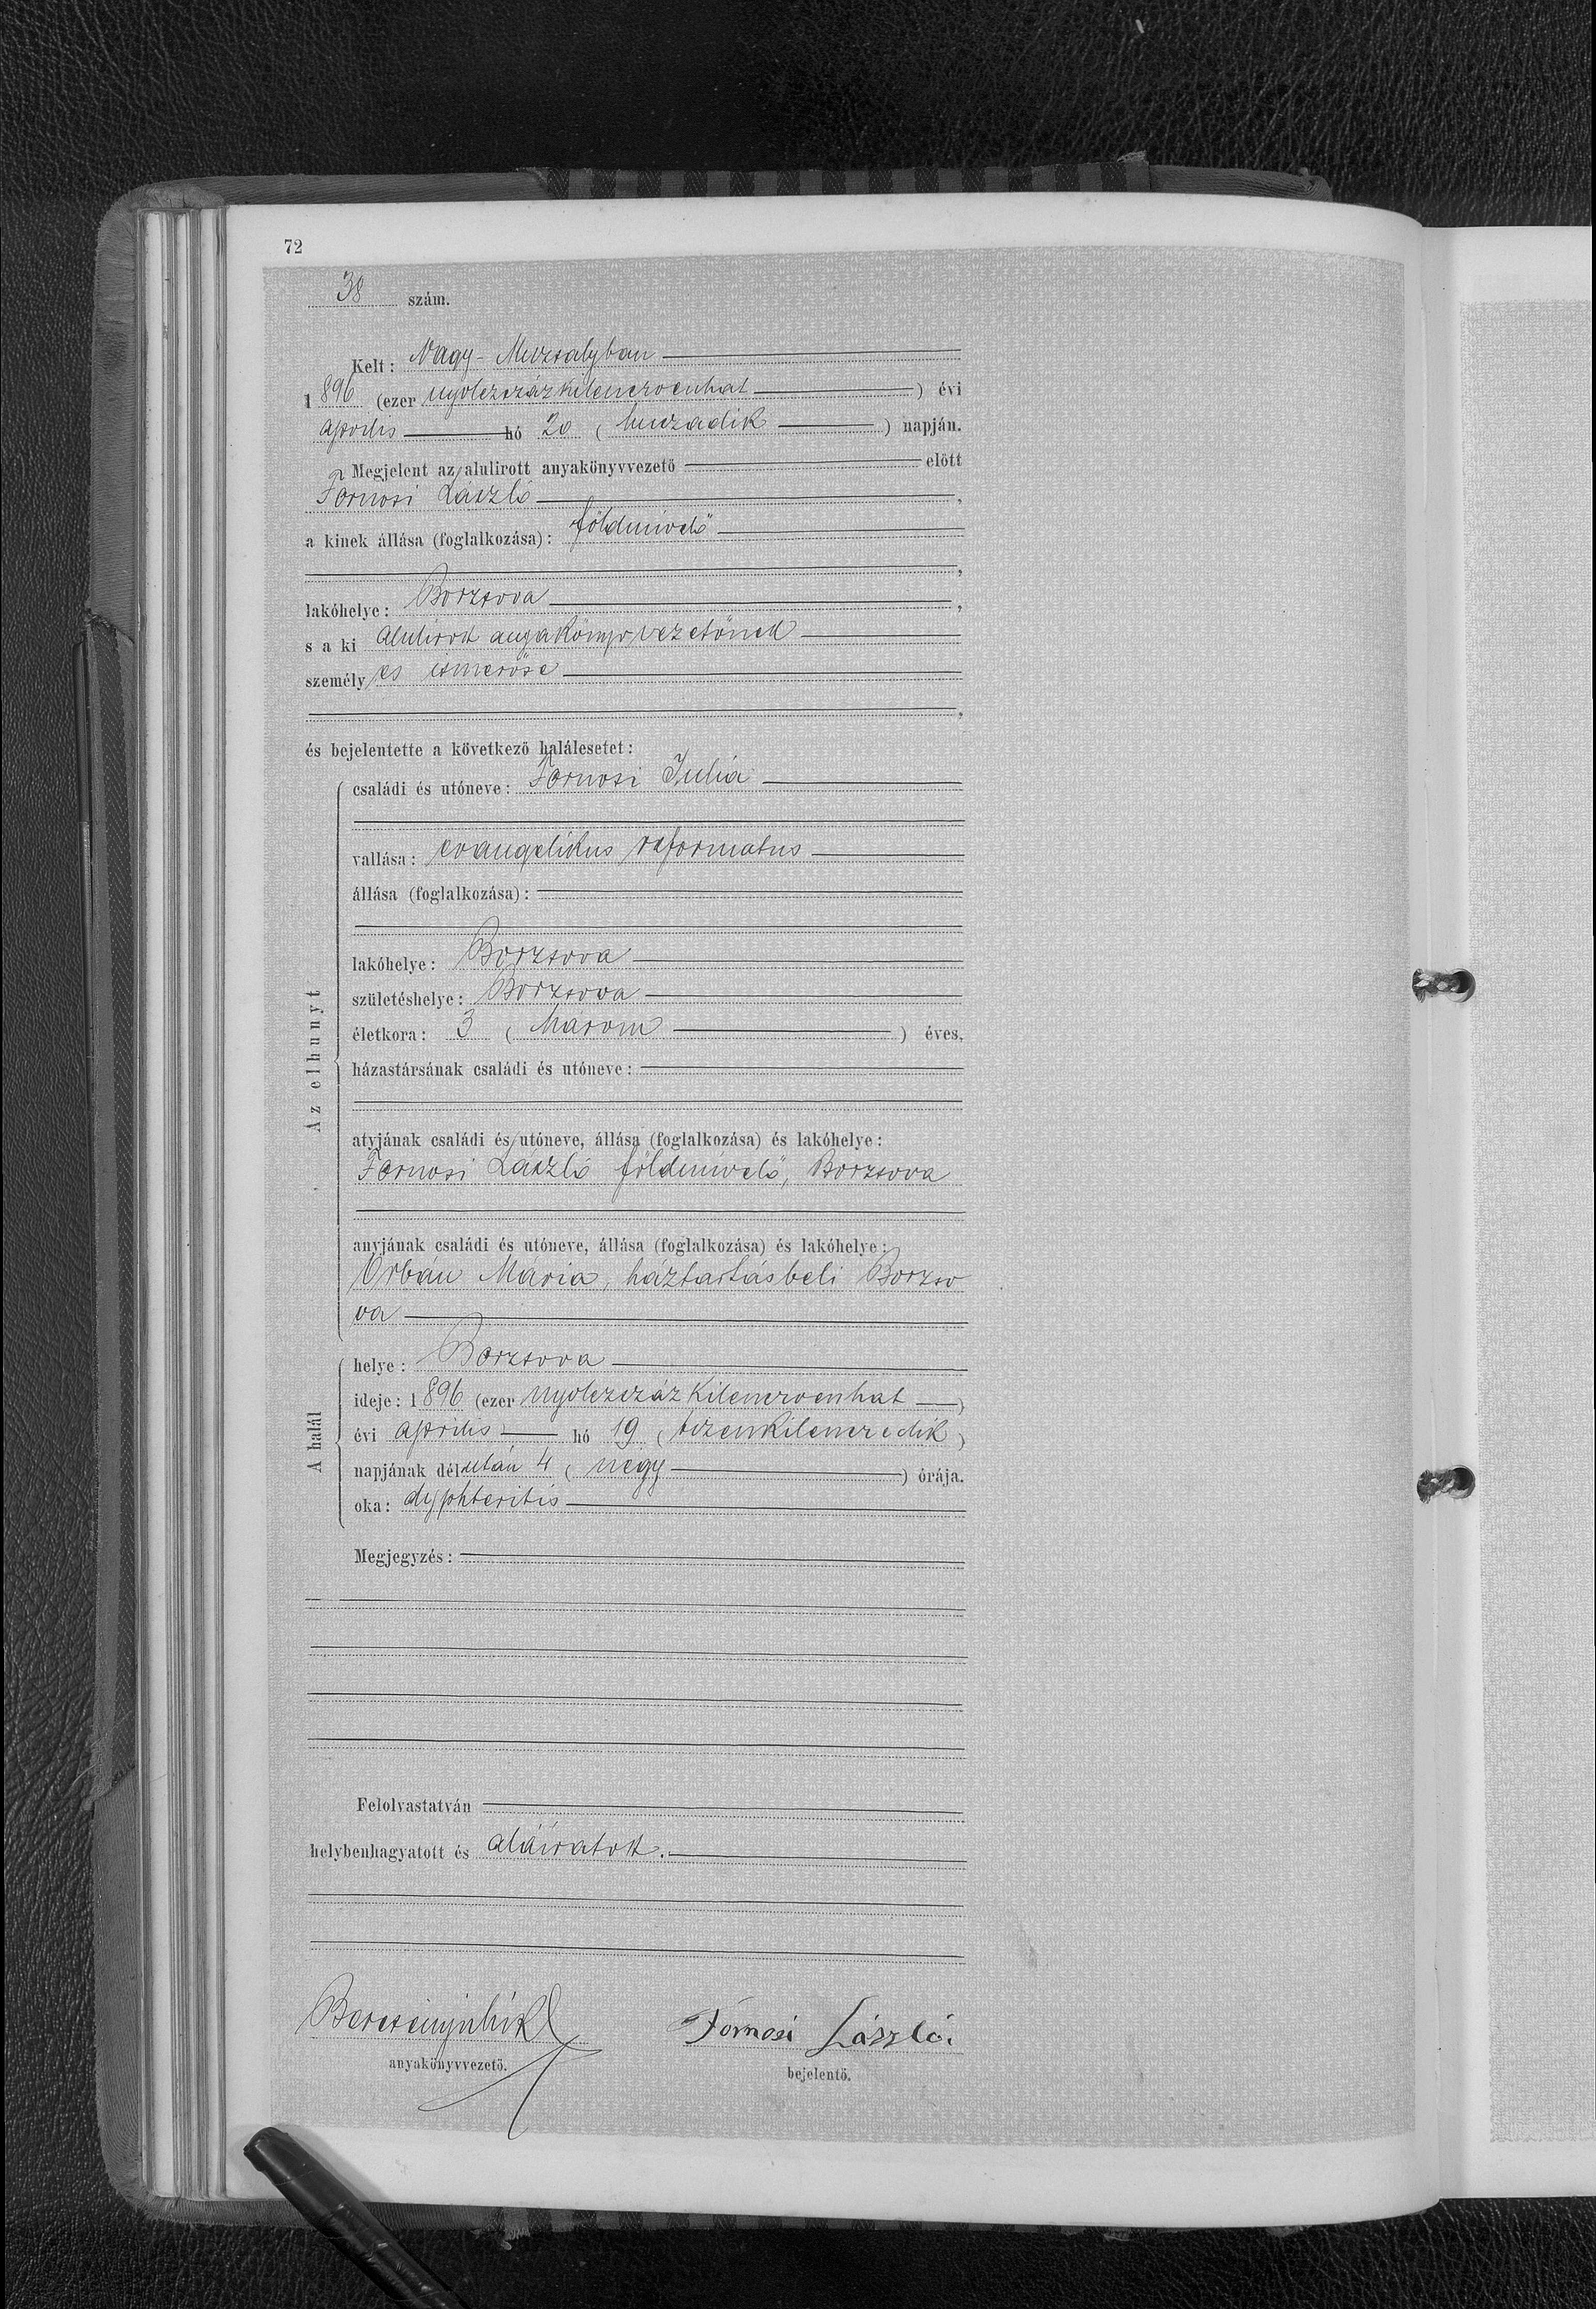 72
38 szám.
Kelt: Nagy-Muzsalyban
1896 (ezer nyolczszázkilenczvenhat) évi
április hó 20 (huszadik) napján.
Megjelent az alulirott anyakönyvvezető előtt
Fornosi László,
a kinek állása (foglalkozása): földmivelő
,
lakóhelye: Borzsova,
s a ki alulirott anyakönyvvezetőnek
személyes ismerőse
,
és bejelentette a következő halálesetet:
Az elhunyt
családi és utóneve: Fornosi Julia
vallása: evangelikus reformatus
állása (foglalkozása):
lakóhelye: Borzsova
születéshelye: Borzsova
életkora: 3 (három) éves,
házastársának családi és utóneve:
atyjának családi és utóneve, állása (foglalkozása) és lakóhelye:
Fornosi László földmivelő, Borzsova
anyjának családi és utóneve, állása (foglalkozása) és lakóhelye:
Orbán Mária, háztartásbeli Borzso
va
A halál
helye: Borzsova
ideje: 1896 (ezer nyolczszáz kilenczvenhat)
évi április hó 19 (tizenkilenczedik)
napjának délután 4 (négy) órája.
oka: dyphteritis
Megjegyzés:
Felolvastatván
helybenhagyatott és aláiratott.
Fornosi László.
anyakönyvvezető.
bejelentő.